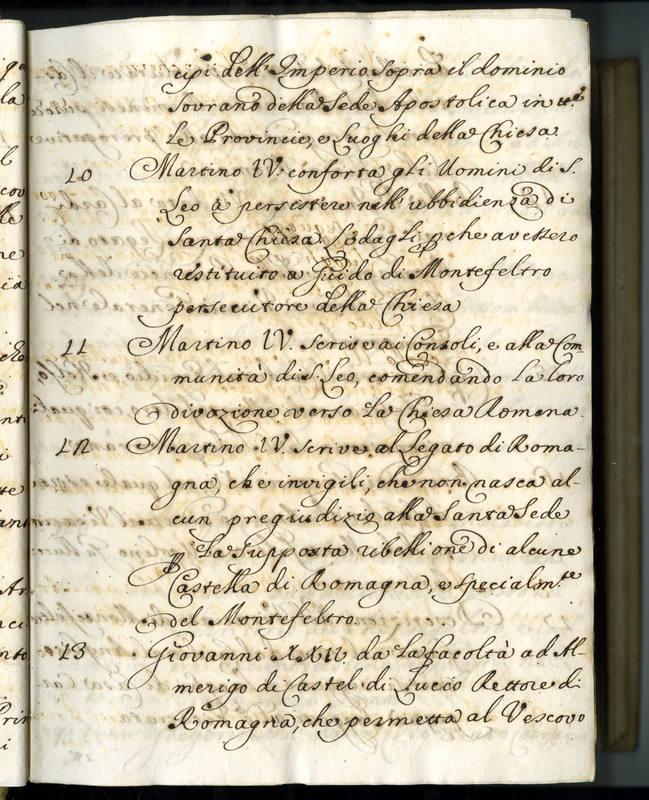 cipi dell'Imperio sopra il dominio
sovrano della Sede Apostolica in tte
Le Provincie, e Luoghi della Chiesa.
10 Martino IV. conforta gli Uomini di S.
Leo a persistere nell'ubbidienza di
Santa Chiesa. Lodagli p che avessero
restituito a Guido di Montefeltro
persecutore della Chiesa
11 Martino IV. scrive ai Consoli, e alla Com-
munità di S. Leo, comendando la loro
divozione verso la Chiesa Romana.
12 Martino IV. scrive al Legato di Roma-
gna, che invigili, che non nasca al-
cun pregiudizio alla Santa Sede
p La supposta ribellione di alcune
Castella di Romagna, e specialm.te
del Montefeltro.
13 Giovanni XXII. da la facoltà ad Al-
merigo di Castel di Lucio Rettore di
Romagna, che permetta al Vescovo